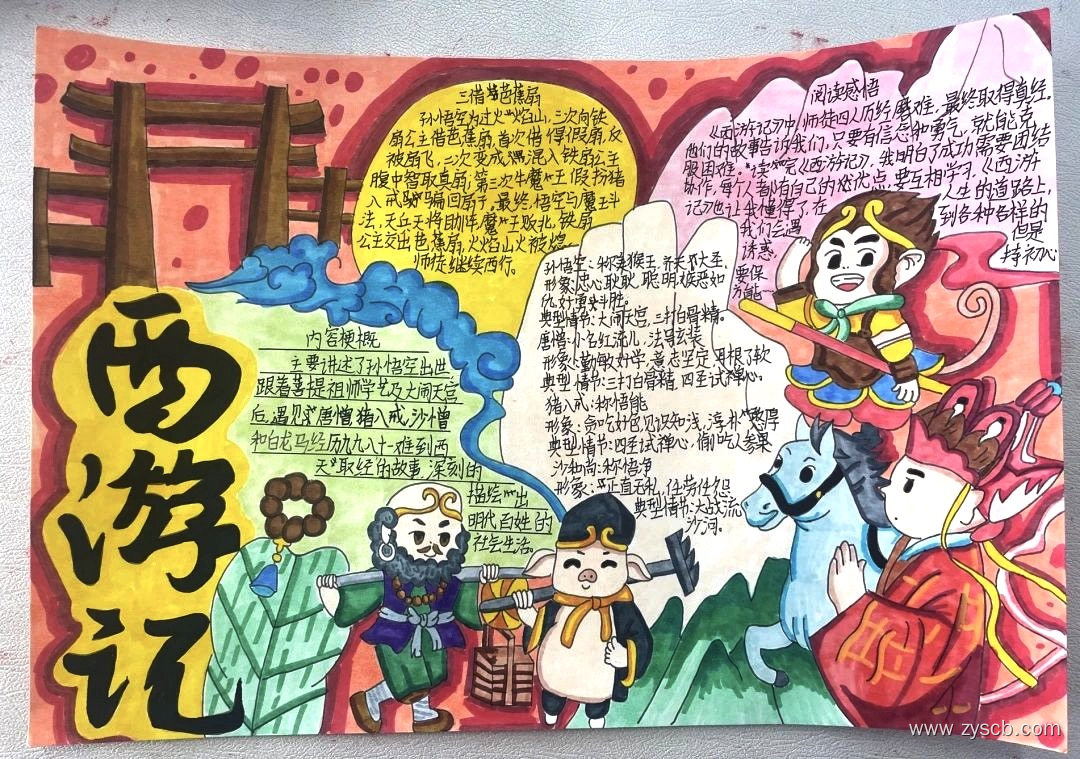 西游记
三借芭蕉扇
孙悟空为过火焰山,三次向铁
扇公主借芭蕉扇,首次借得假扇,反
被扇飞,二次变成混入铁扇公主
腹中智取真扇,第三次牛魔王假扮猪
八戒骗回扇子,最终,悟空与魔王斗
法,天兵天将助阵,魔王败北,铁扇
公主交出芭蕉扇,火焰山火被熄,
师徒继续西行。
阅读感悟
《西游记》中,师徒四人历经磨难,最终取得真经,
他们的故事告诉我们,只要有信念和勇气,就能克
服困难。读完《西游记》,我明白了成功需要团结
协作,每个人都有自己的优点,要互相学习。《西游
记》也让我懂得了,在人生的道路上,
我们会遇到各种各样的
诱惑,但是
要保持初心
方能
内容梗概
主要讲述了孙悟空出世
跟着菩提祖师学艺及大闹天宫
后,遇见唐僧猪八戒,沙僧
和白龙马经历九九八十一难到西
天取经的故事,深刻的
描绘出
明代百姓的
社会生活。
孙悟空:称美猴王,齐天大圣,
形象:忠心耿耿,聪明,嫉恶如
仇,好勇斗胜。
典型情节:大闹天宫,三打白骨精。
唐僧:小名红流儿,法号玄装
形象:勤敏好学,意志坚定,耳根子软
典型情节:三打白骨精,四圣试禅心。
猪八戒:称悟能
形象:贪吃好色,见识短浅,淳朴憨厚
典型情节:四圣试禅心,偷吃人参果
沙和尚:称悟净
形象:正直无私,任劳任怨
典型情节:大战流
沙河。
www.zyscb.com